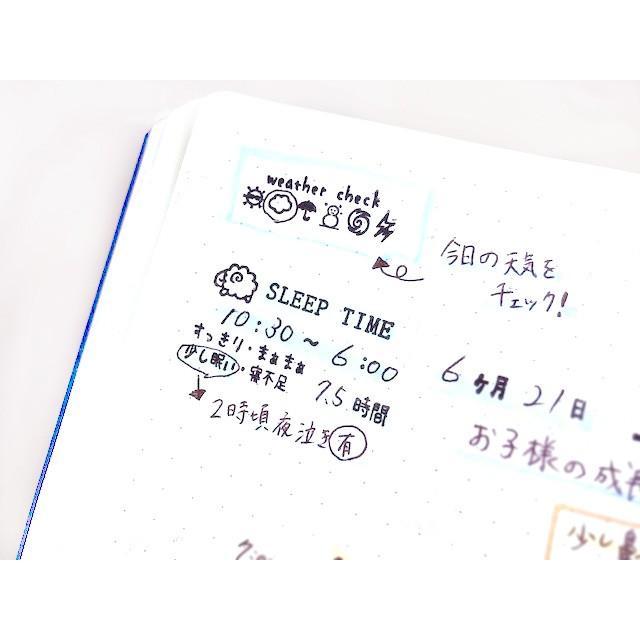 weather check
今日の天気を
チェック!
SLEEP TIME
10:30～6:00
すっきり・まぁまぁ
少し眠い・寝不足
7.5時間
2時頃夜泣き有
6ヶ月21日
お子様の成
少し